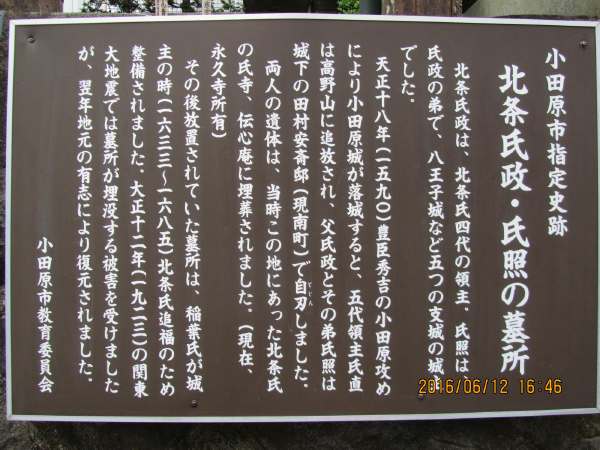 小田原市指定史跡
北条氏政・氏照の墓所
北条氏政は、北条氏四代の領主。氏照は、
氏政の弟で、八王子城など五つの支城の城主
でした。
天正十八年(一五九〇)豊臣秀吉の小田原攻め
により小田原城が落城すると、五代領主氏直
は高野山に追放され、父氏政とその弟氏照は
城下の田村安斎邸(現南町)で自刃しました。
じじん
両人の遺体は、当時この地にあった北条氏
の氏寺、伝心庵に埋葬されました。(現在、
永久寺所有)
その後放置されていた墓所は、稲葉氏が城
主の時(一六三三〜一六八五)北条氏追福のため
整備されました。大正十二年(一九二三)の関東
大地震では墓所が埋没する被害を受けました
が、翌年地元の有志により復元されました。
小田原市教育委員会
2016/06/12 16:46